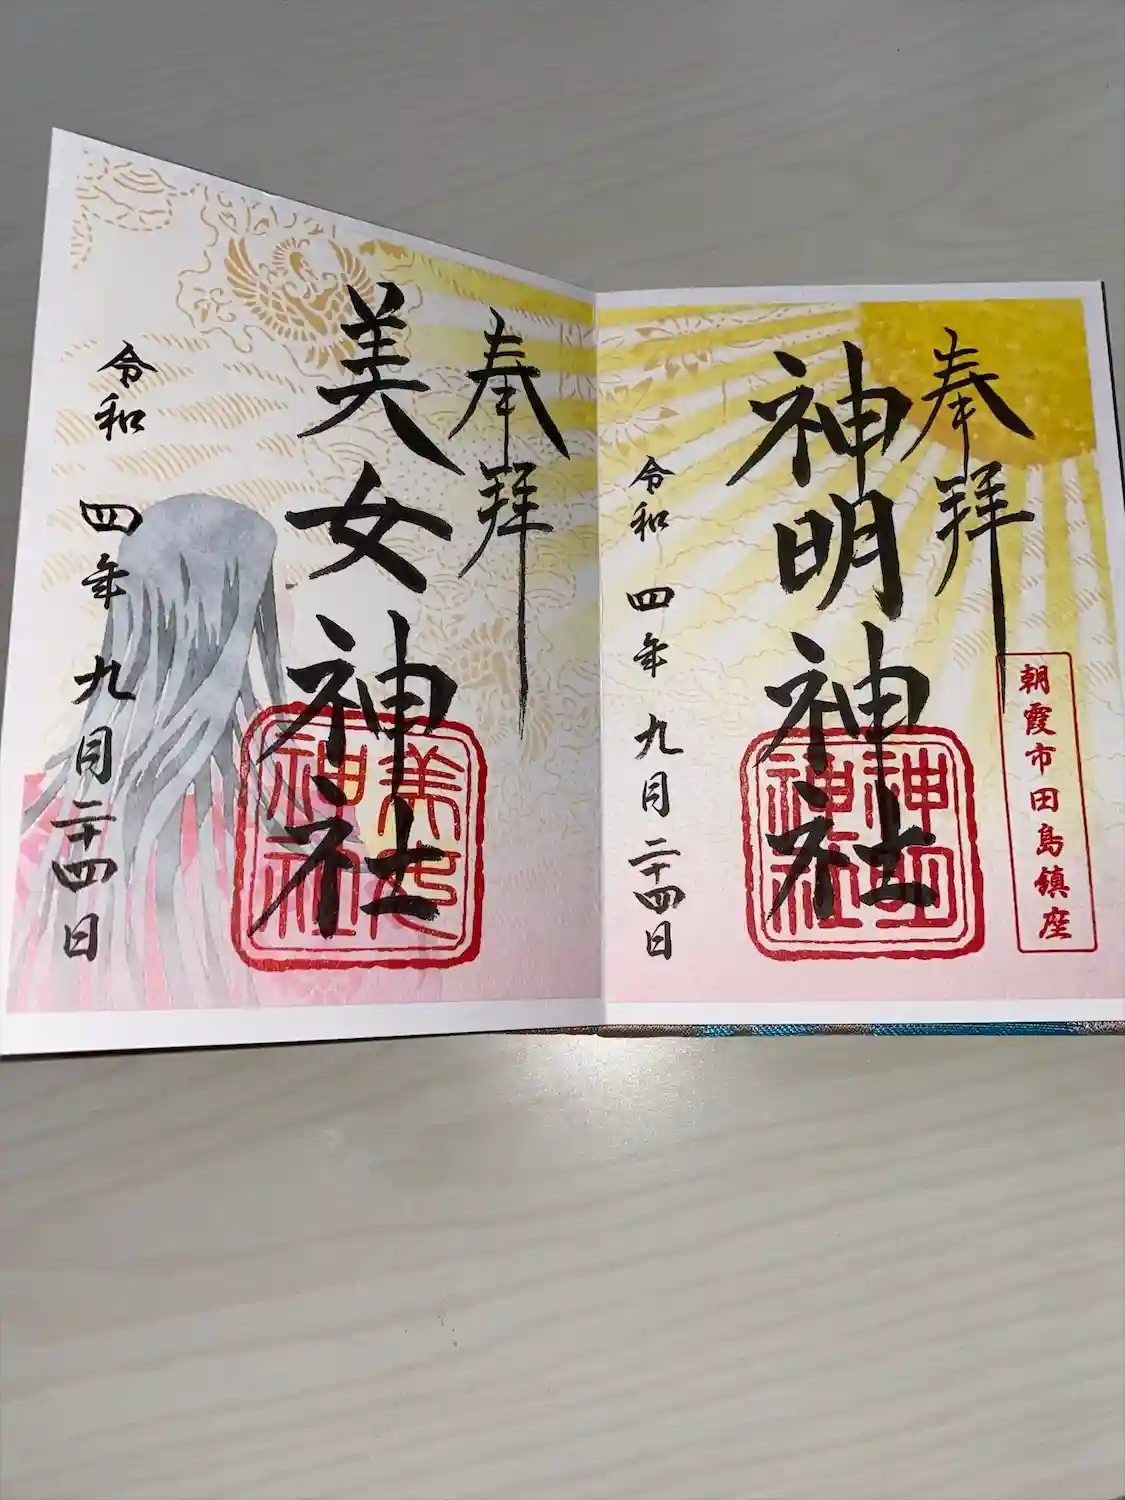 奉拝
神明神社
令和四年九月二十四日
朝霞市田島鎮座
神明
神社
奉拝
美女神社
令和四年九月二十四日
美女
神社